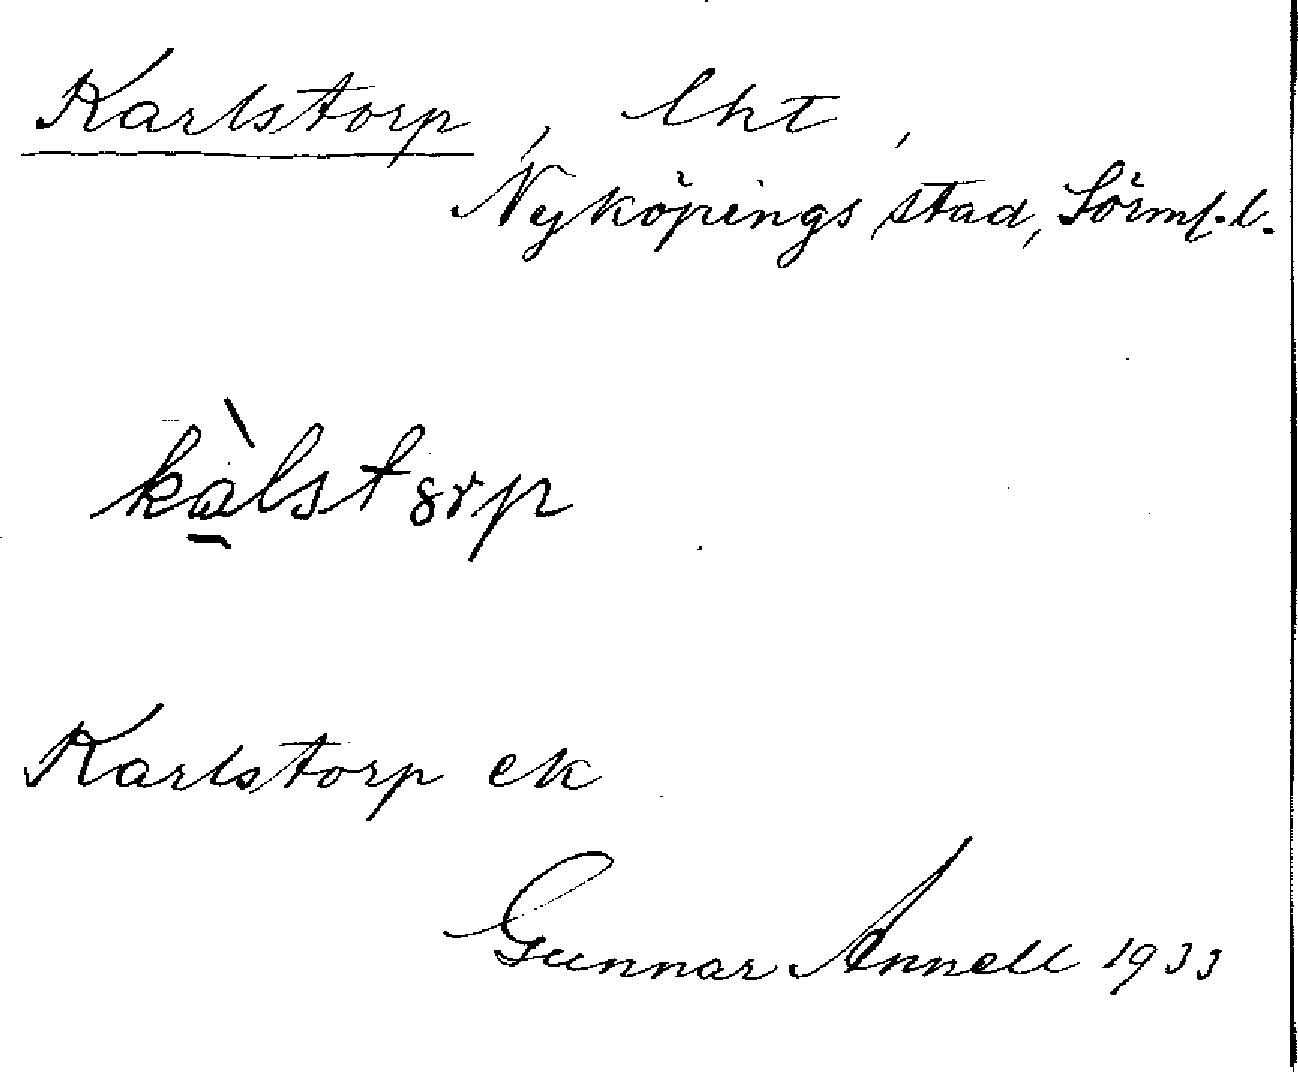 Karlstorp, lht,
Nyköpings stad, Sörml.l.
kàlstorp
Karlstorp ek
Gunnar Annell 1933